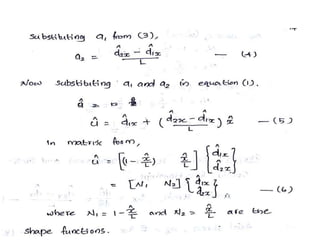 Substituting a₁ from (3),
a₂ = (d̂₂ₓ - d̂₁ₓ)/L — (4)
Now substituting a₁ and a₂ in equation (1).
û = d̂₁ₓ + ((d̂₂ₓ - d̂₁ₓ)/L) x̂ — (5)
In matrix form,
û = [(1 - x̂/L) x̂/L] {d̂₁ₓ d̂₂ₓ}
= [N₁ N₂] {d̂₁ₓ d̂₂ₓ} — (6)
where N₁ = 1 - x̂/L and N₂ = x̂/L are the
shape functions.